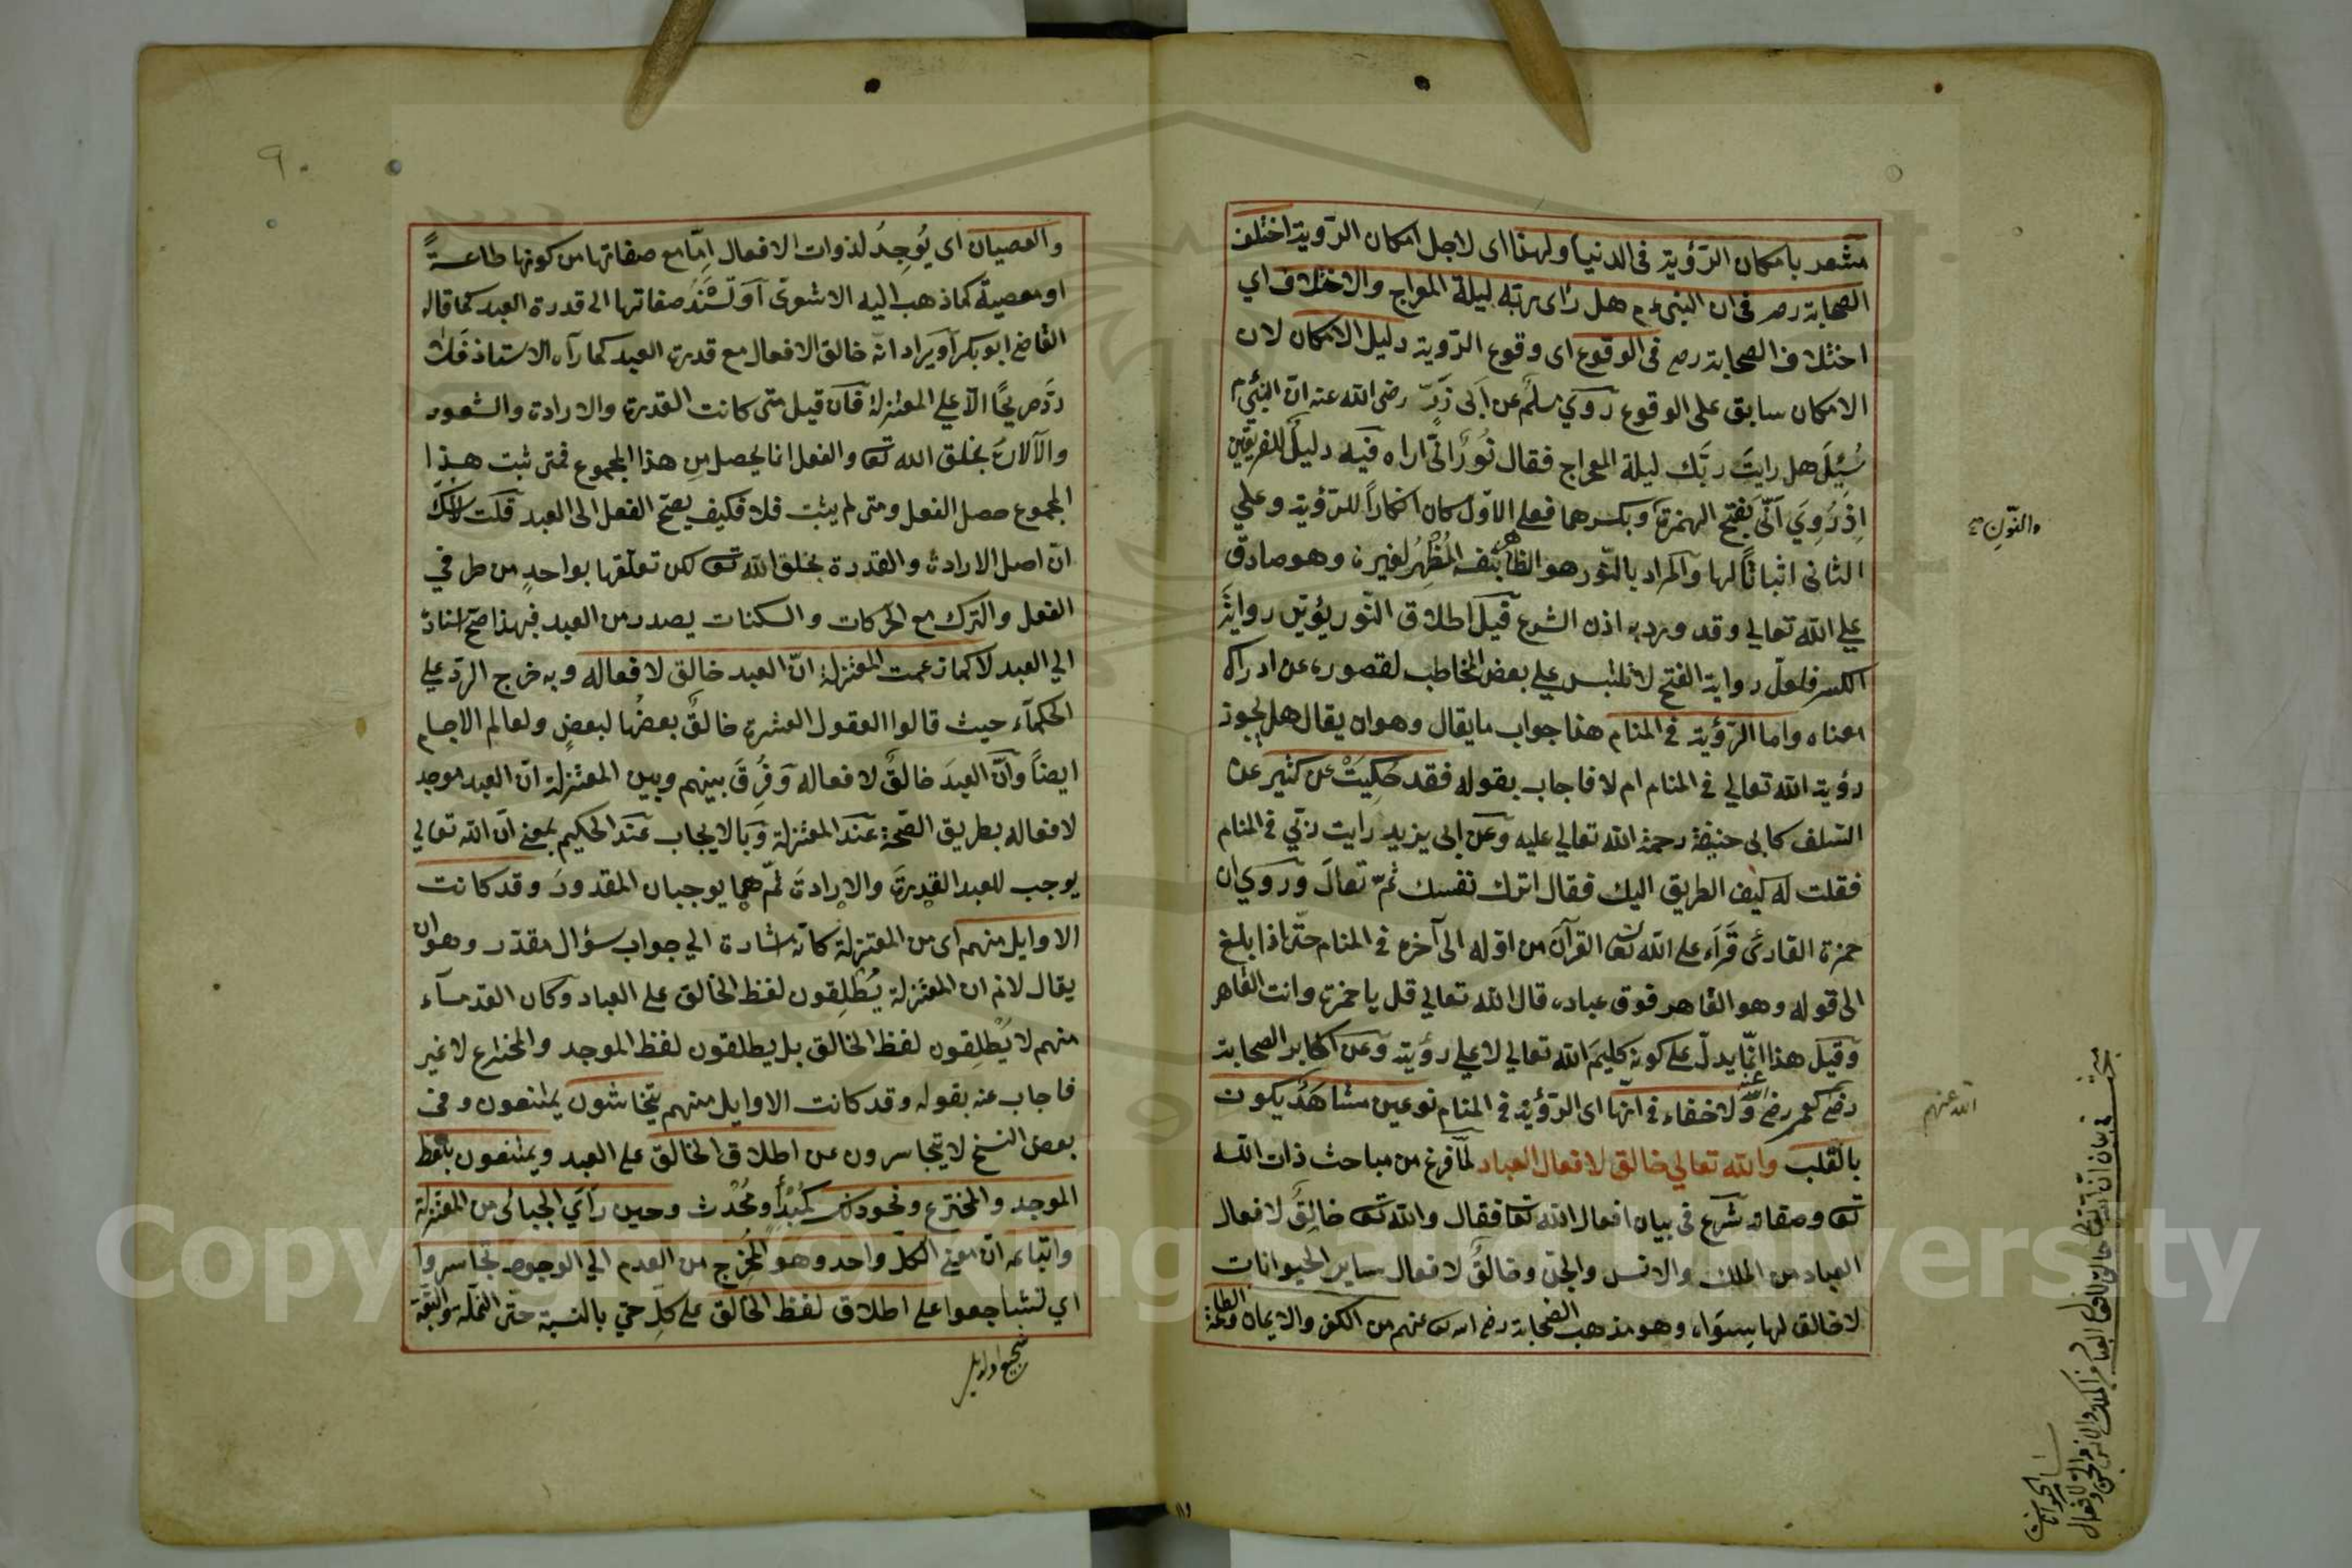 مشعر بامكان الرّؤية فى الدنيا ولهذا اى لاجل امكان الرّوية اختلف
الصحابة رض فى ان النبى ءم هل رأى ربّه ليلة المعراج والاختلاف اي
اختلاف الصحابة رض فى الوقوع اى وقوع الرّوية دليل الامكان لان
الامكان سابق على الوقوع روي مسلم عن ابى ذرّ رضى الله عنه انّ النبىّ م
سُئِلَ هل رايتَ ربّك ليلة المعراج فقال نُورٌ انّى اراه فيه دليل للفريقين
اِذ رُوِيَ انّى بفتح الهمزة وبكسرها فعلى الاوّل كان انكاراً للرّؤية وعلي
الثانى اثباتاً لها والمراد بالنّور هو الظاهر بنفسه المُظْهِرُ لغيره وهو صادق
علي الله تعالي وقد ورد به اذن الشرع قيل اطلاق النّور يؤيّن رواية
الكسر فلعلّ رواية الفتح لا تلتبس علي بعض المخاطب لقصوره عن ادراك
معناه واما الرّؤية في المنام هذا جواب ما يقال وهو ان يقال هل يجوز
رؤية الله تعالي في المنام ام لا فاجاب بقوله فقد حُكِيَتْ عن كثير عن
السّلف كابى حنيفة رحمة الله تعالي عليه وعن ابى يزيد رايت ربّي في المنام
فقلت له كيف الطريق اليك فقال اترك نفسك ثمّ تعالَ وروي ان
حمزة القارئ قَرَاَء على الله تعا القرآن من اوّله الى آخره في المنام حتّى اذا بلغ
الى قوله وهو القاهر فوق عباده قال الله تعالي قل يا حمزة وانت القاهر
وقيل هذا انّما يدلّ على كونه كليمَ الله تعالي لا علي رؤيته وعن اكابر الصحابة
رضي كعمر رضي الله عنه ولا خفاء في انّها اى الرّؤية في المنام نوع من مشاهَدٌ يكون
بالقلب والله تعالي خالق لافعال العباد لمّا فرغ من مباحث ذات الله
تعا وصفاته شرع فى بيان افعال الله تعا فقال والله تعا خالِقٌ لافعال
العباد من الملك والانس والجن وخالقٌ لافعال ساير الحيوانات
لا خالق لها سِوَاه وهو مذهب الصّحابة رضي الله تعا عنهم من الكفر والايمان والطاعة
والنّون
الله عنهم
مبحث في بيان انّ الله تعالى خالق لافعال العباد من الملك والانس والجن ولافعال
ساير الحيوانات
٩٠
والعصيان اى يُوجِدُ لذوات الافعال اِمّا مع صفاتها من كونها طاعةً
او معصية كما ذهب اليه الاشعرىّ او تُسْنَدُ صفاتها الى قدرة العبد كما قاله
القاضى ابو بكر او يراد انّه خالق الافعال مع قدرة العبد كما رآه الاستاذ فلا
ردَّ صريحًا الّا علي المعتزلة فان قيل متى كانت القدرة والارادة والشعور
والآلات بخلق الله تعا والفعل انما يحصل من هذا المجموع فمتى ثبت هذا
المجموع حصل الفعل ومتى لم يثبت فلا فكيف يصحّ الفعل الى العبد قلت
انّ اصل الارادة والقدرة بخلق الله تعا لكن تعلّقها بواحدٍ من طرفي
الفعل والترك مع الحركات والسكنات يصدر من العبد فبهذا صحّ اسناده
الي العبد لا كما زعمت المعتزلة انّ العبد خالق لافعاله وبه خرج الردّ علي
الحكمآء حيث قالوا العقول العشرة خالقٌ بعضُها لبعضٍ ولعالم الاجسام
ايضاً وانّ العبدَ خالقٌ لافعاله وَفُرِقَ بينهم وبين المعتزلة انّ العبد موجد
لافعاله بطريق الصّحة عند المعتزلة وبالايجاب عند الحكيم بمعنى انّ الله تعالي
يوجب للعبد القدرةَ والارادةَ ثمّ هما يوجبان المقدورَ وقد كانت
الاوايل منهم اى من المعتزلة كانّه اشارة الي جواب سؤال مقدّر وهو ان
يقال لانم ان المعتزلة يُطْلِقون لفظ الخالق على العباد وكان القدمآء
منهم لا يُطْلِقون لفظ الخالق بل يطلقون لفظ الموجد والمخترع لا غير
فاجاب عنه بقوله وقد كانت الاوايل منهم يتحاشون يمتنعون وفى
بعض النسخ لا يتجاسرون عن اطلاق الخالق على العبد ويمتنعون بلفظ
الموجد والمخترع ونحو ذلك كمُبْدِأٍ ومُحْدث وحين رأي الجبائى من المعتزلة
واتباعه انّ معنى الكلّ واحد وهو المُخْرِج من العدم الي الوجود تجاسروا
اي تشاجعوا على اطلاق لفظ الخالق على كلّ حيّ بالنسبة حتى النملة والبقّة